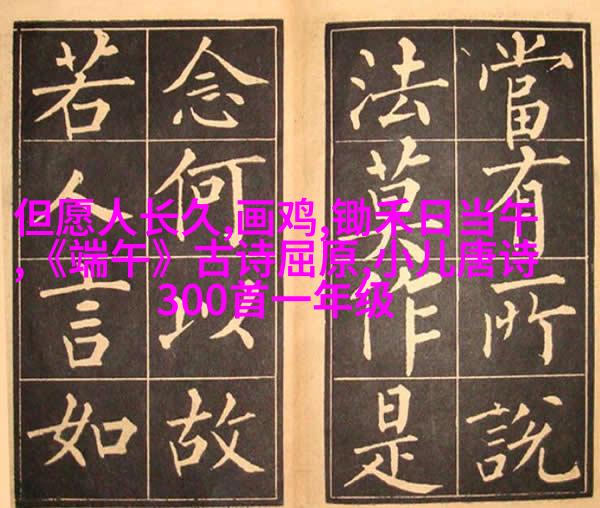 但愿人长久,画鸡,锄禾日当午
,《端午》古诗屈原,小儿唐诗
300首一年级
當有所說
法莫作是
念何以故
若人言如